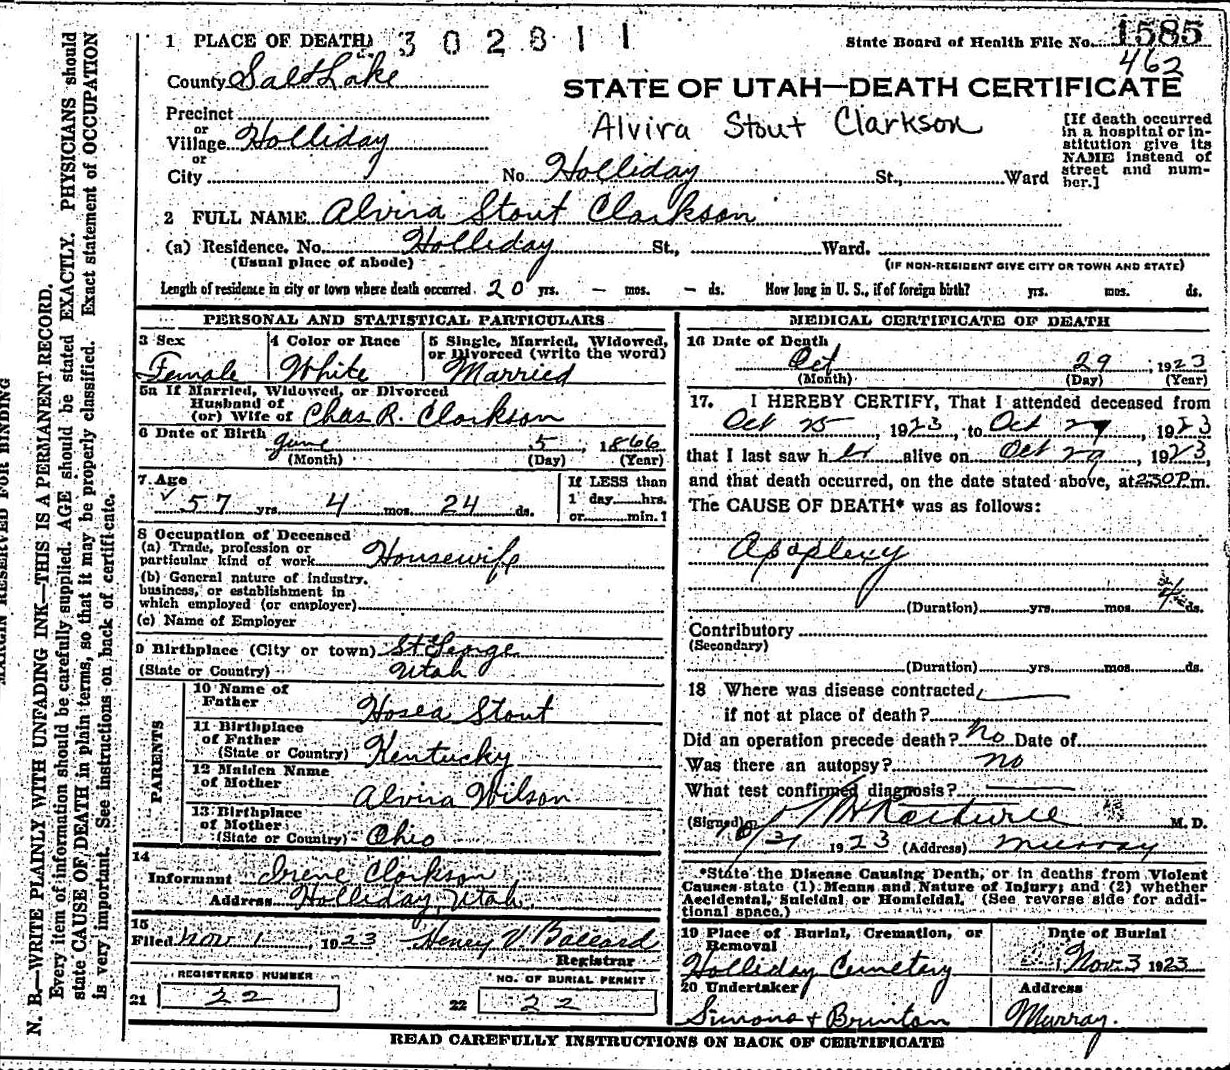 1 PLACE OF DEATH 3 0 2 8 1 1
State Board of Health File No. 1585
462
County Salt Lake
STATE OF UTAH—DEATH CERTIFICATE
Alvira Stout Clarkson
Precinct
or
Village Holliday
or
City No. Holliday St., Ward
[If death occurred
in a hospital or in-
stitution give its
NAME instead of
street and num-
ber.]
2 FULL NAME Alvira Stout Clarkson
(a) Residence. No. Holliday St., Ward.
(Usual place of abode) (IF NON-RESIDENT GIVE CITY OR TOWN AND STATE)
Length of residence in city or town where death occurred 20 yrs. — mos. — ds. How long in U. S., if of foreign birth? yrs. mos. ds.
PERSONAL AND STATISTICAL PARTICULARS
3 Sex
Female
4 Color or Race
White
5 Single, Married, Widowed,
or Divorced (write the word)
Married
5a If Married, Widowed, or Divorced
Husband of
(or) Wife of Chas R. Clarkson
6 Date of Birth June 5, 1866
(Month) (Day) (Year)
7 Age
57 yrs. 4 mos. 24 ds.
If LESS than
1 day hrs.
or min. 1
8 Occupation of Deceased
(a) Trade, profession or
particular kind of work Housewife
(b) General nature of industry,
business, or establishment in
which employed (or employer)
(c) Name of Employer
9 Birthplace (City or town) St George
(State or Country) Utah
PARENTS
10 Name of
Father Hosea Stout
11 Birthplace
of Father
(State or Country) Kentucky
12 Maiden Name
of Mother Alvira Wilson
13 Birthplace
of Mother
(State or Country) Ohio
14
Informant Irene Clarkson
Address Holliday, Utah.
15
Filed Nov 1, 1923 Henry V. Ballard
Registrar
REGISTERED NUMBER
21 22
NO. OF BURIAL PERMIT
22 22
MEDICAL CERTIFICATE OF DEATH
16 Date of Death
Oct 29, 1923
(Month) (Day) (Year)
17. I HEREBY CERTIFY, That I attended deceased from
Oct 25, 1923, to Oct 29, 1923
that I last saw her alive on Oct 29, 1923,
and that death occurred, on the date stated above, at 2:30 P.m.
The CAUSE OF DEATH* was as follows:
Apoplexy
(Duration) yrs. mos. ds.
Contributory
(Secondary)
(Duration) yrs. mos. ds.
18 Where was disease contracted,
if not at place of death?
Did an operation precede death? No Date of
Was there an autopsy? no
What test confirmed diagnosis?
(Signed) M. D.
10/31 1923 (Address) Murray
*State the Disease Causing Death, or in deaths from Violent
Causes state (1) Means and Nature of Injury; and (2) whether
Accidental, Suicidal or Homicidal. (See reverse side for addi-
tional space.)
19 Place of Burial, Cremation, or
Removal
Holliday Cemetery
Date of Burial
Nov. 3 1923
20 Undertaker
Simons & Brunton
Address
Murray.
READ CAREFULLY INSTRUCTIONS ON BACK OF CERTIFICATE
MARGIN RESERVED FOR BINDING
N. B.—WRITE PLAINLY WITH UNFADING INK—THIS IS A PERMANENT RECORD.
Every item of information should be carefully supplied. AGE should be stated EXACTLY. PHYSICIANS should
state CAUSE OF DEATH in plain terms, so that it may be properly classified. Exact statement of OCCUPATION
is very important. See instructions on back of certificate.